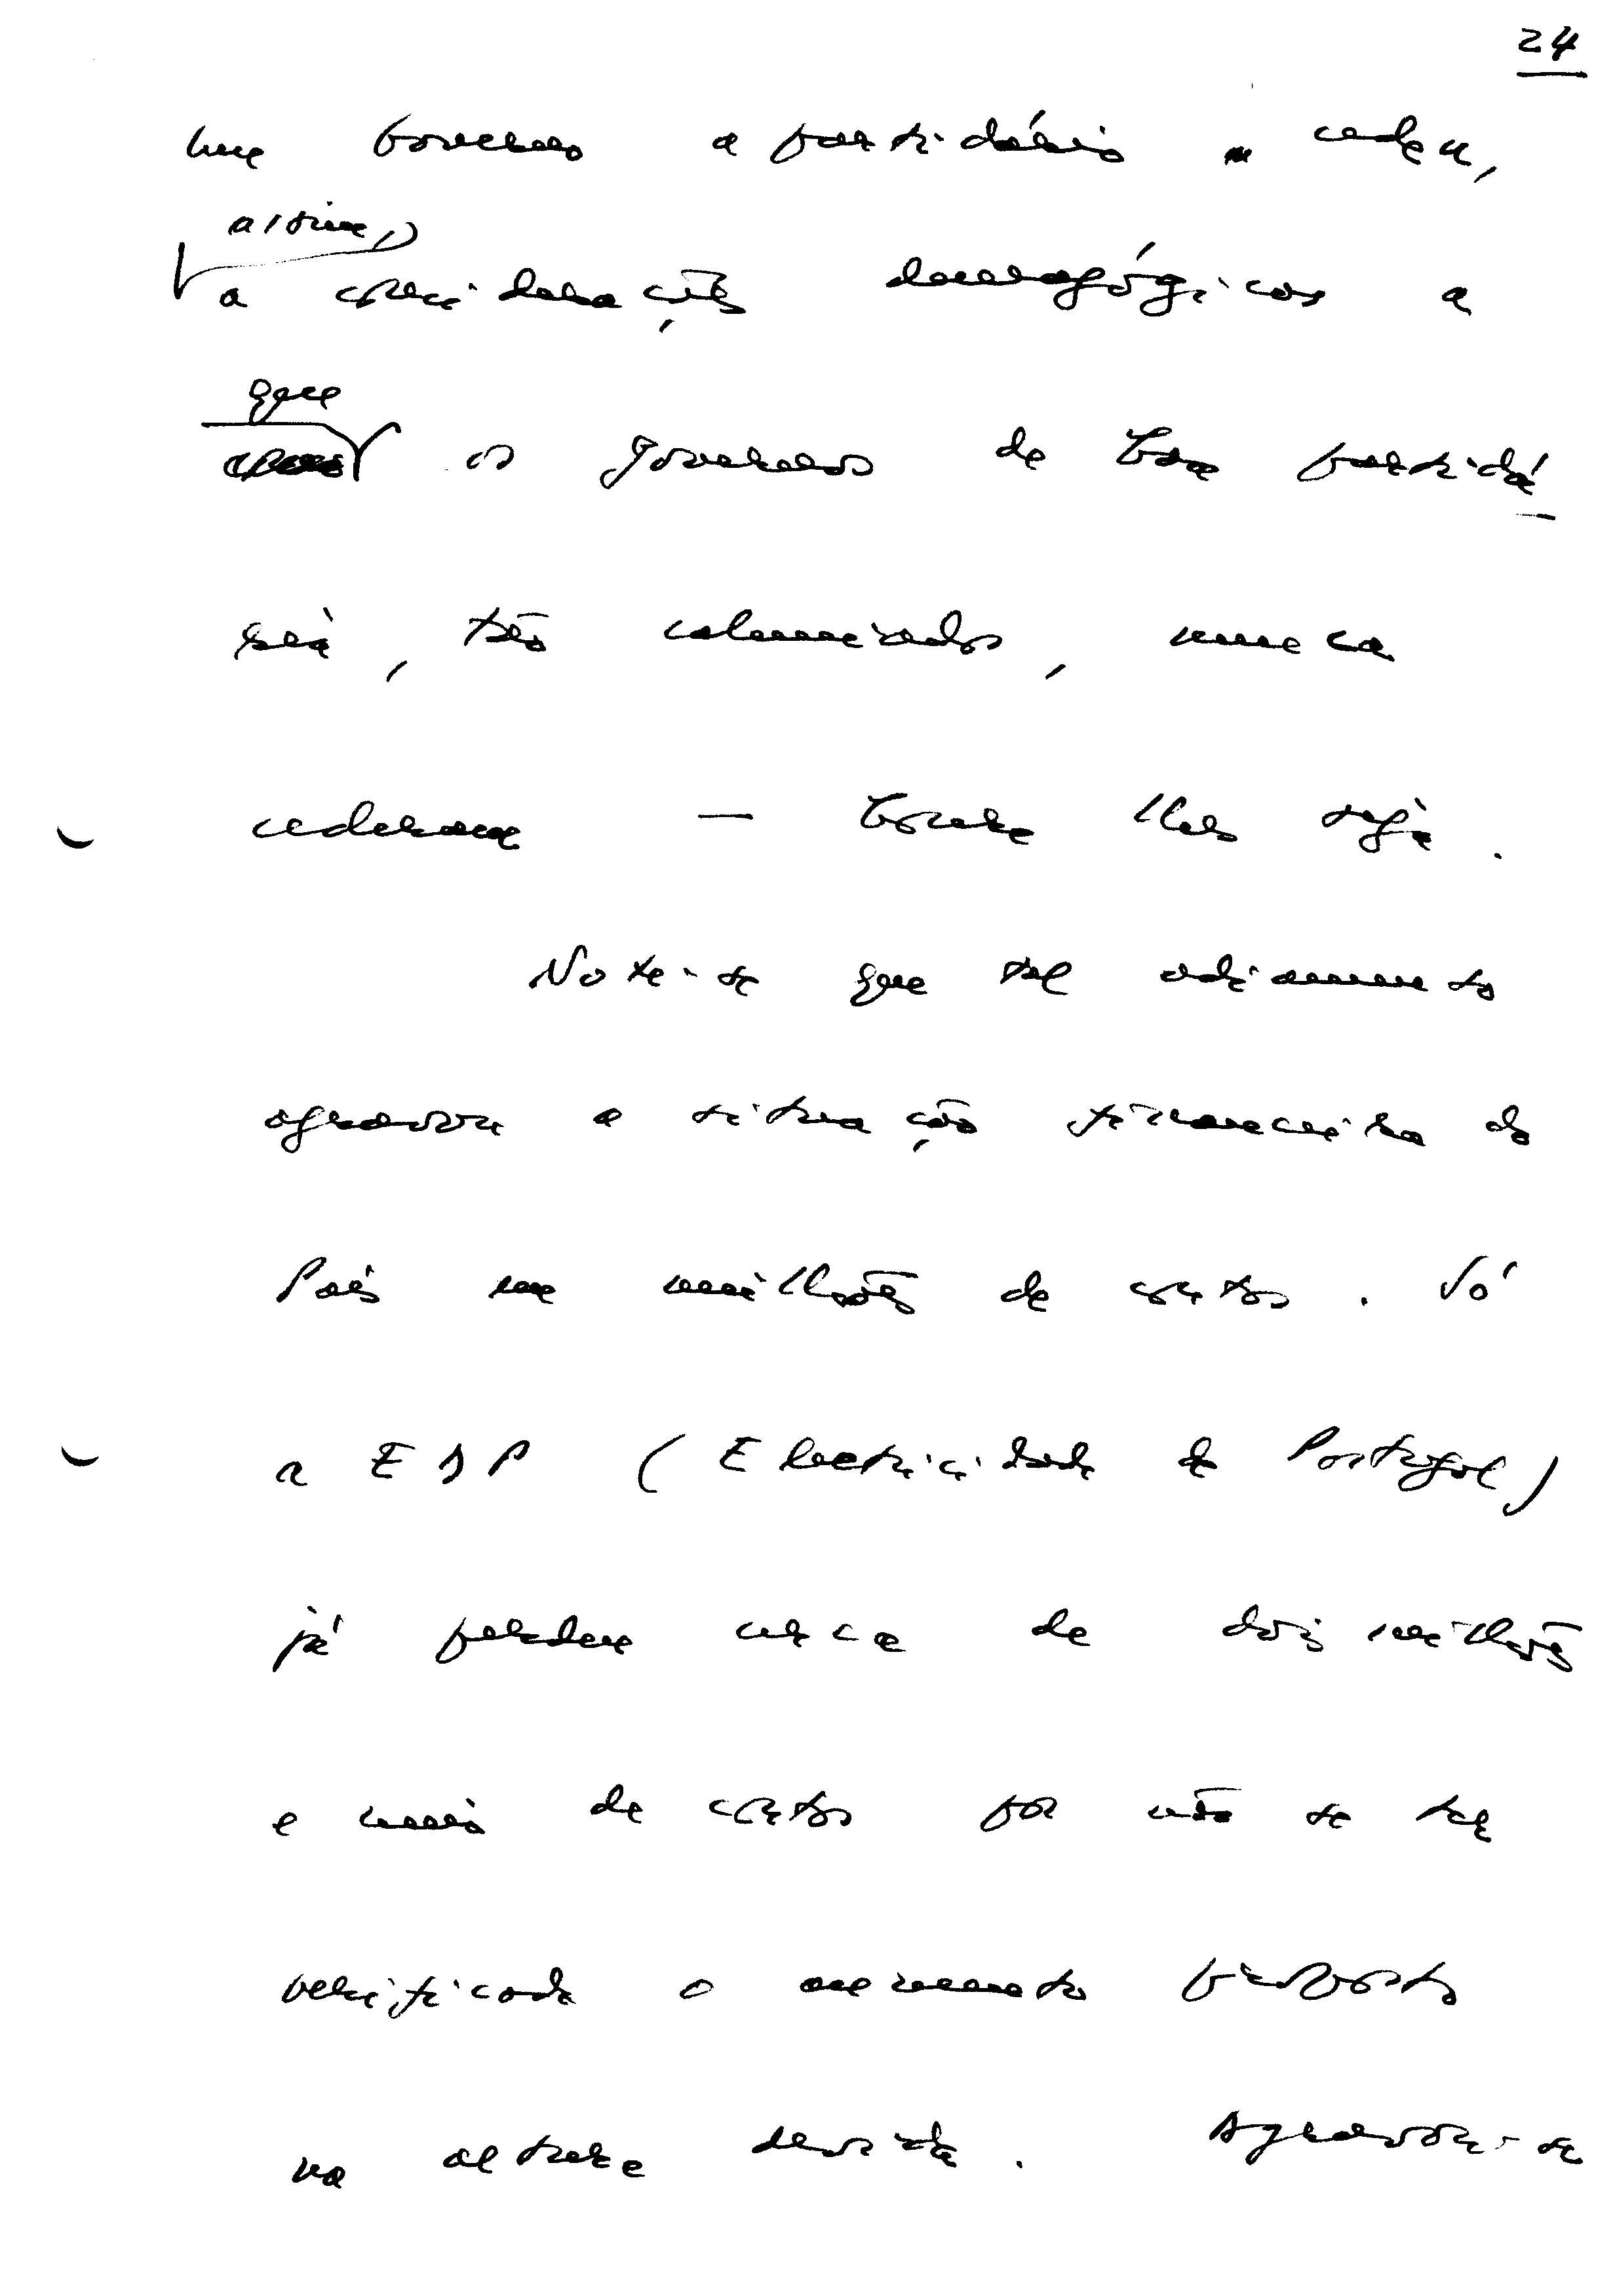 24
um Governo apartidário a ceder,
assim,
a considerações demagógicas a
que
os governos de base partidá
ria, tão caluniados, nunca
cederam — honra lhes seja.
Note-se que tal adiamento
agravou a situação financeira do
País em milhões de contos. Só
a EDP (Electricidade de Portugal)
já perdeu cerca de dois milhões
e meio de contos por não se ter
verificado o aumento previsto
na altura devida. Agravou-se